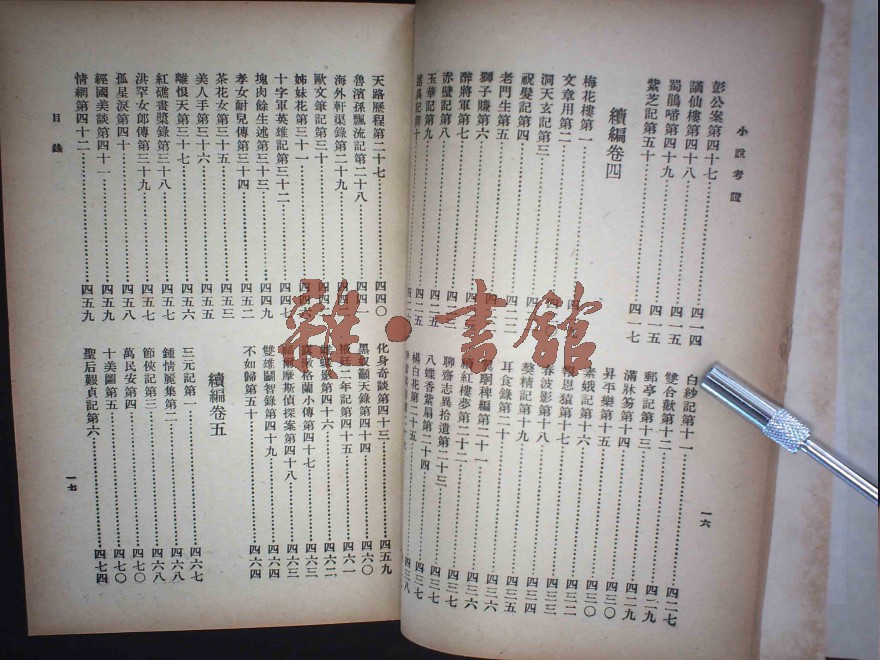 小說考證
彭公案第四十七 四一四
謫仙樓第四十八 四一五
蜀鵑啼第四十九 四一五
紫芝記第五十 四一七
續編卷四
梅花樓第一
文章用第二
洞天玄記第三
祝髮記第四
老門生第五 四二二
獅子賺第六
醉將軍第七
赤壁記第八 四二三
玉華記第九 四二五
記第十
白紗記第十一 四二七
雙合歡第十二 四二九
郵亭記第十三 四二九
滿牀笏第十四 四二九
昇平樂第十五 四三〇
素娥記第十六 四三〇
報恩猿第十七 四三二
春波影第十八 四三三
鏊精記第十九 四三四
耳食錄第二十 四三五
稗編第二十一 四三六
續紅樓夢第二十二 四三六
聊齋志異拾遺第二十三 四三七
八蝶香紫扇第二十四 四三七
楊白花第二十五 四三七
四三八
一六
天路歷程第二十七 四四〇
魯濱孫飄流記第二十八 四四一
海外軒渠錄第二十九
歐文筆記第三十
姊妹花第三十一 四四六
十字軍英雄記第三十二 四四七
塊肉餘生述第三十三 四四九
孝女耐兒傳第三十四 四五二
茶花女第三十五 四五三
美人手第三十六 四五五
離恨天第三十七 四五六
紅礁畫槳錄第三十八 四五七
洪罕女郎傳第三十九 四五七
孤星淚第四十 四五八
經國美談第四十一 四五九
情網第四十二 四五九
目錄
化身奇談第四十三 四五九
黑奴籲天錄第四十四 四六〇
掖廷二年記第四十五 四六一
影第四十六 四六二
格蘭小傳第四十七 四六三
爾摩斯偵探案第四十八 四六三
雙雄鬭智錄第四十九 四六四
不如歸第五十 四六四
續編卷五
三元記第一 四六七
鍾情麗集第二 四六八
節俠記第三 四六八
萬民安第四 四七〇
十美圖第五 四七〇
聖后艱貞記第六 四七四
一七
雜·書館